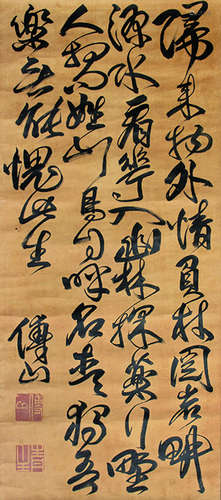 歸來物外情負杖閱岩畊
源水看花入幽林採藥行野
人相問姓山鳥自呼名去獨吾
樂无能愧此生
傅山